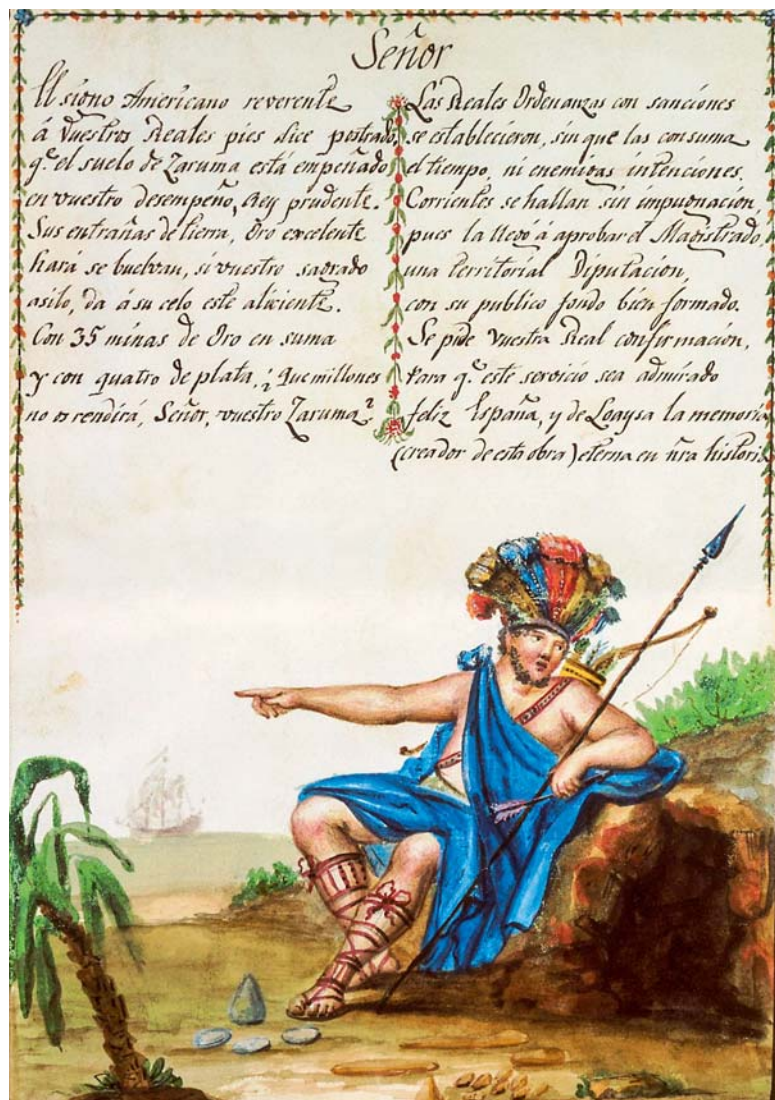 Señor
El signo Americano reverente
á vuestros Reales pies dice postrado,
q.e el suelo de Zaruma está empeñado
en vuestro desempeño, Rey prudente.
Sus entrañas de tierra, Oro excelente
hará se buelvan, si vuestro sagrado
asilo, da á su celo este aliciente.
Con 35 minas de Oro en suma
y con quatro de plata, ¿Que millones
no os rendirá, Señor, vuestro Zaruma?
Las Reales Ordenanzas con sanciones
se establecieron, sin que las consuma
el tiempo, ni enemigas intenciones.
Corrientes se hallan sin impugnación
pues la llegó á aprobar el Magistrado,
una territorial Diputación,
con su publico fondo bien formado.
Se pide vuestra Real confirmación,
Para q.e este servicio sea admirado
feliz España, y de Loaysa la memoria
(creador de esta obra) eterna en ñra historia